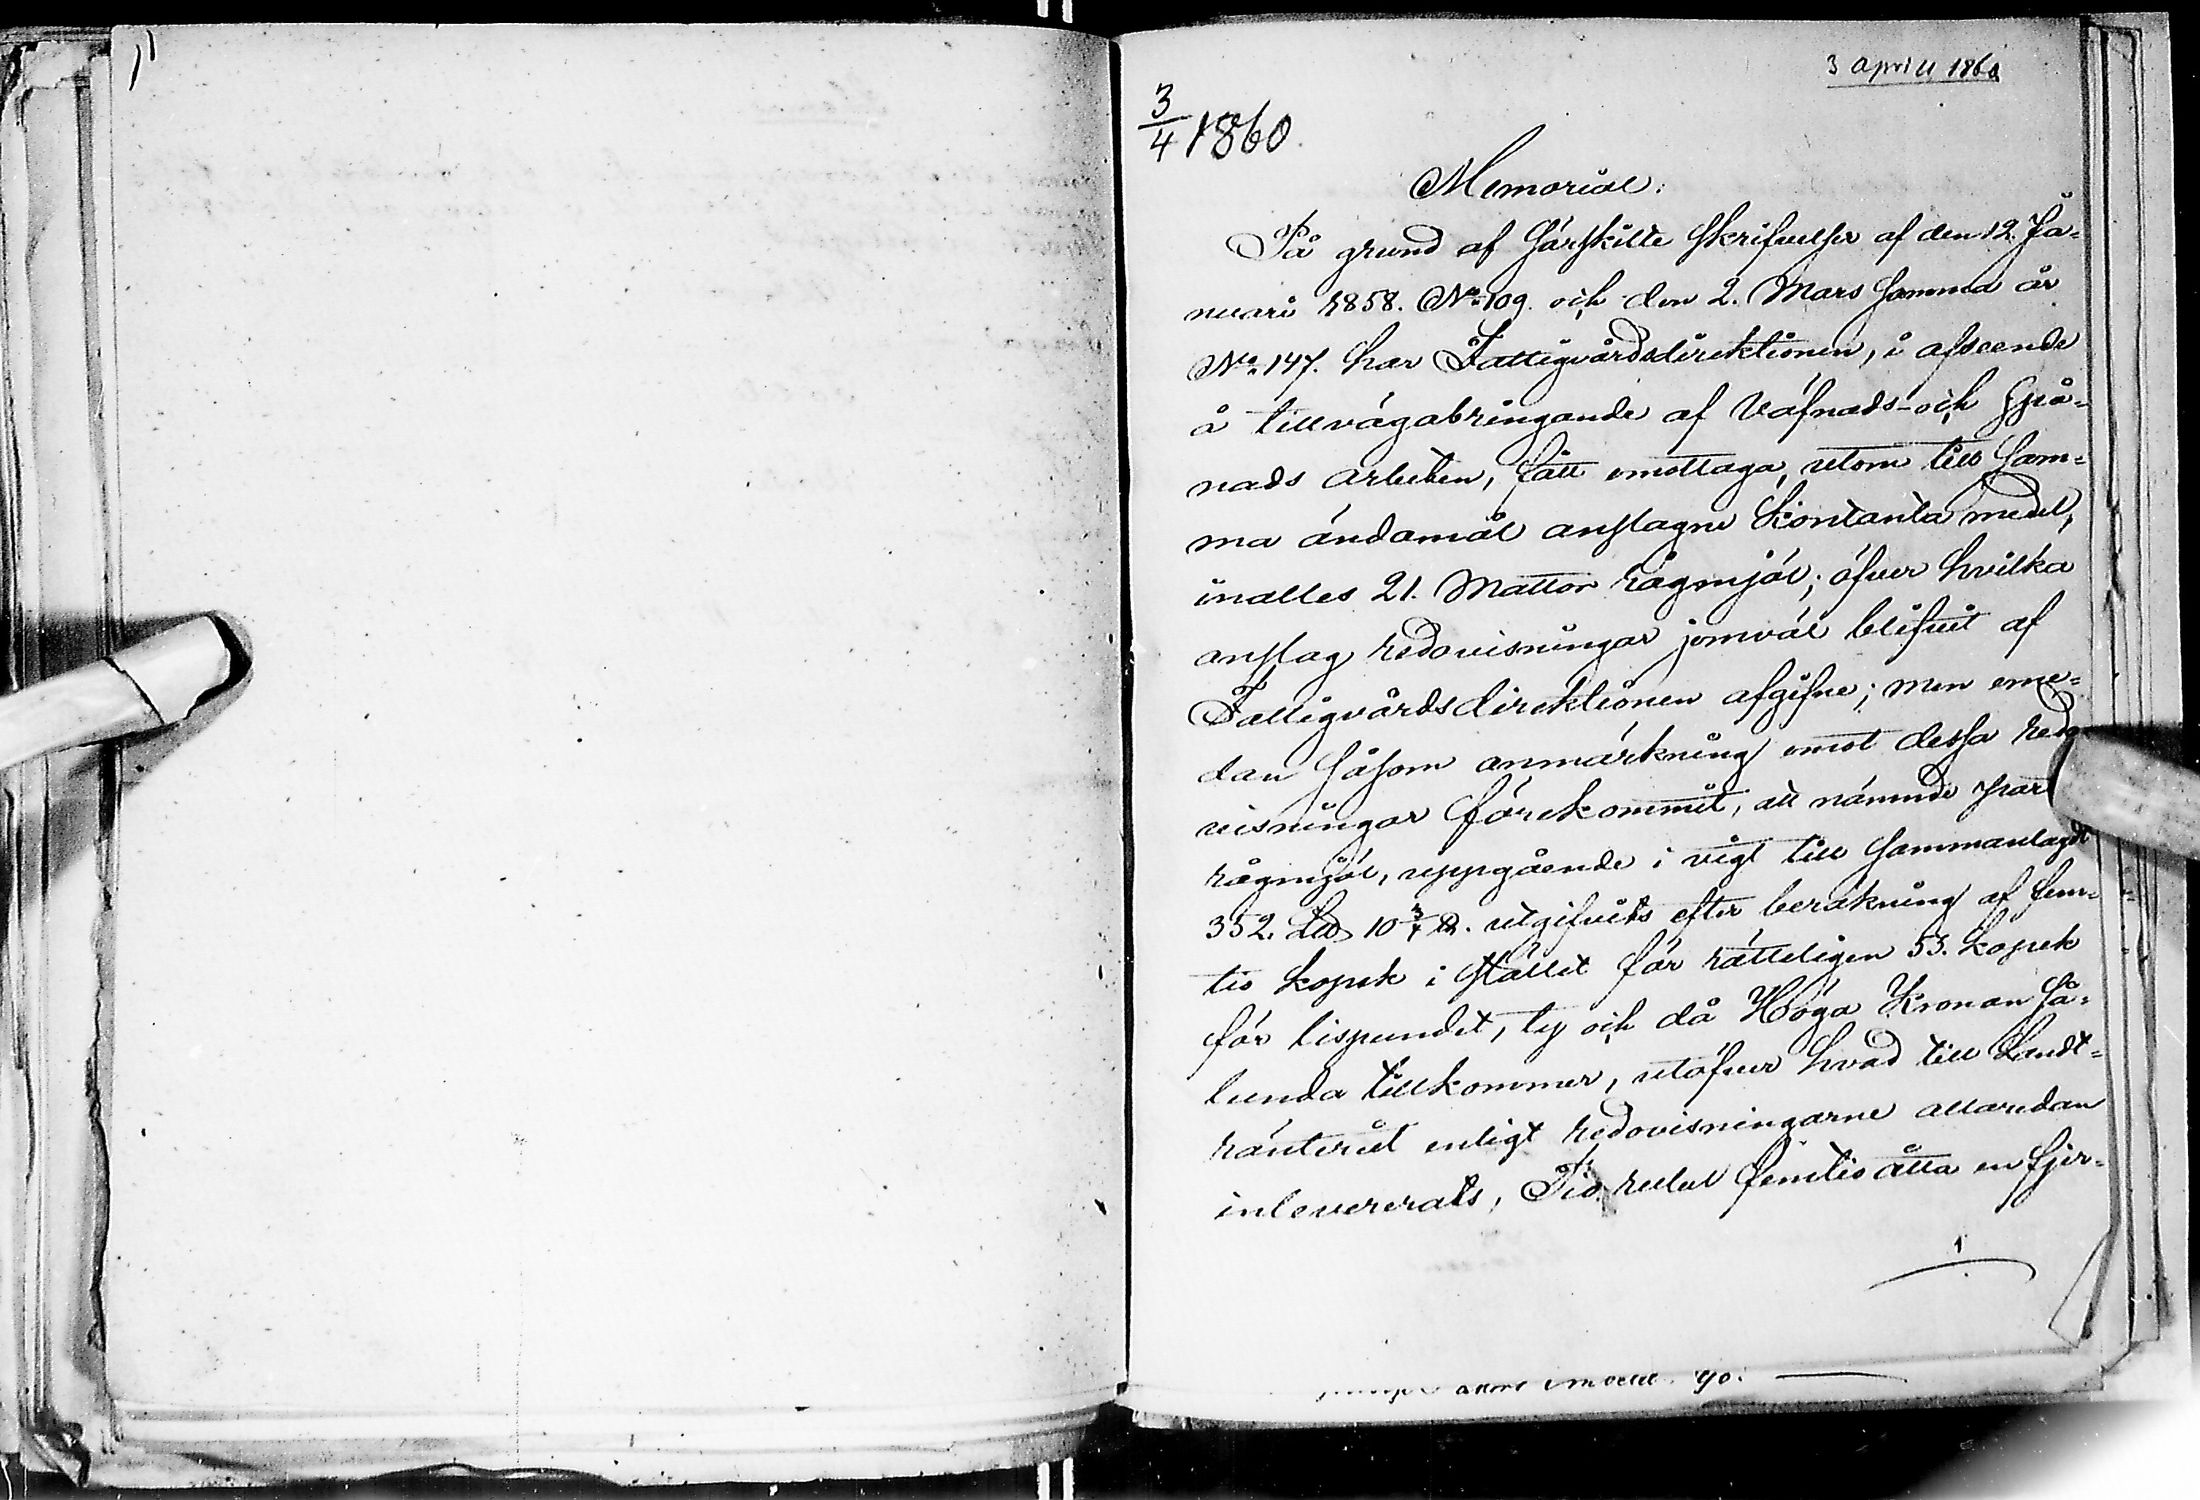 3 April 1860
3/4 1860.
Memorial.
På grund af särskilte skrifvelser af den 12 Ja-
nuari 1858. No 109. och den 2. Mars samma år
No 147. har Fattigvårdsdirektionen, i afseende
å tillvägabringande af Väfnads- och Spå-
nads arbeten, fått emottaga, utom till sam-
ma ändamål anslagne Kontanta medel,
inalles 21. Mattor rågmjöl; öfver hvilka
anslag redovisningar jemväl blifvit af
Fattigvårdsdirektionen afgifne; men eme-
dan såsom anmärkning emot dessa redo
visningar förekommit, att nämnde par
rågmjöl, uppgående i vigt till sammanlagdt
352. L℔ 10 3/4 ℔. utgifvits efter beräkning af fem-
tio kopek i stället för rätteligen 55. kopek
för lispundet, ty och då Höga Kronan så-
lunda tillkommer, utöfver hvad till Landt-
ränteriet enligt redovisningarne allaredan
inlevererats, Tio rubel femtio åtta en fjer-
1
90.